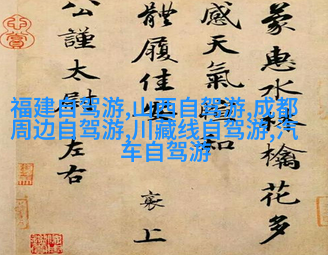 福建自驾游,山西自驾游,成都
周边自驾游,川藏线自驾游,汽
车自驾游
蒙惠水林檎花多
感天氣暄和
體履佳安
襄上
公謹太尉左右